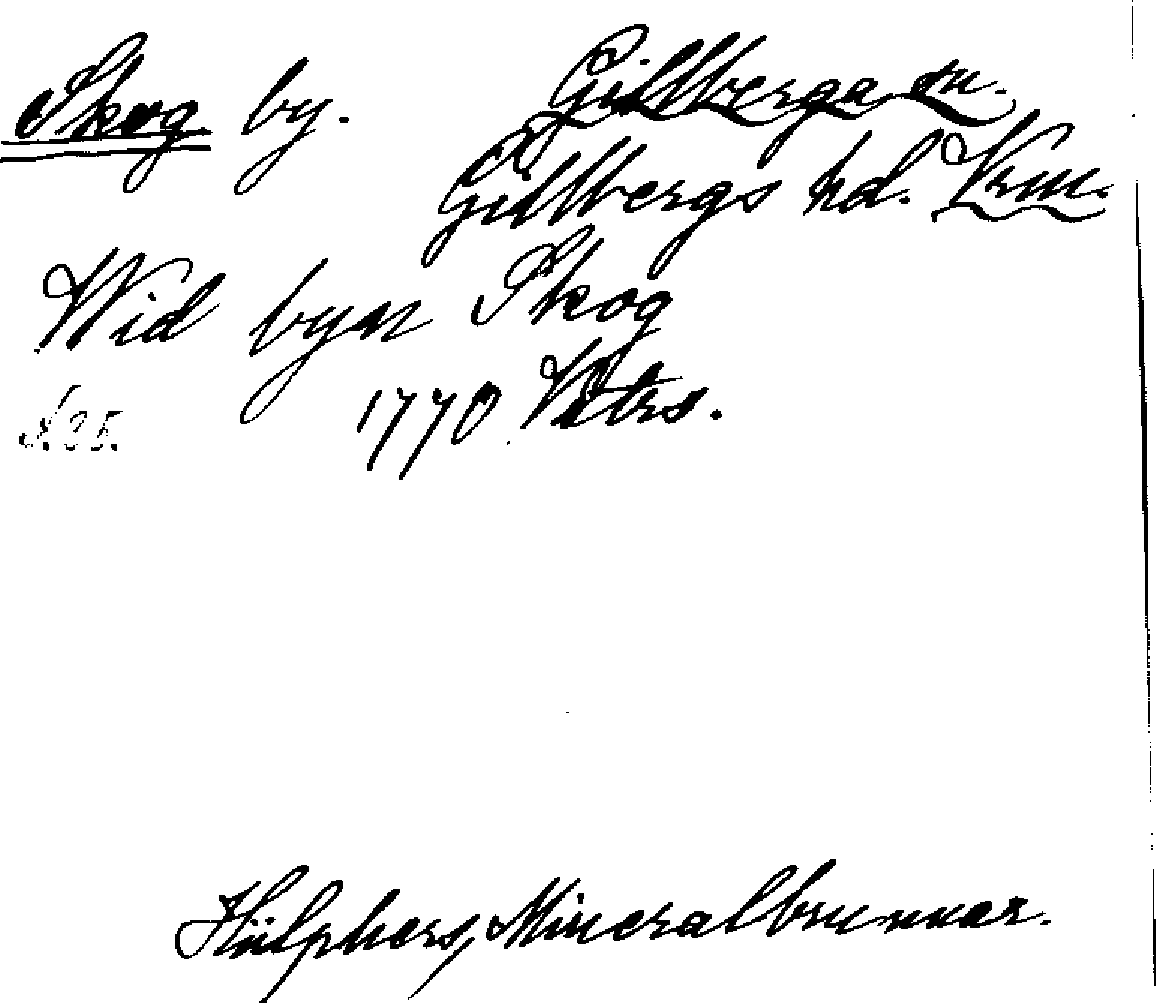 Skog by. Gillberga sn.
Gillbergs hd. Vrm.
Wid byn Skog
1770 Västrs.
S. 25.
Hülphers, Mineralbrunnar.